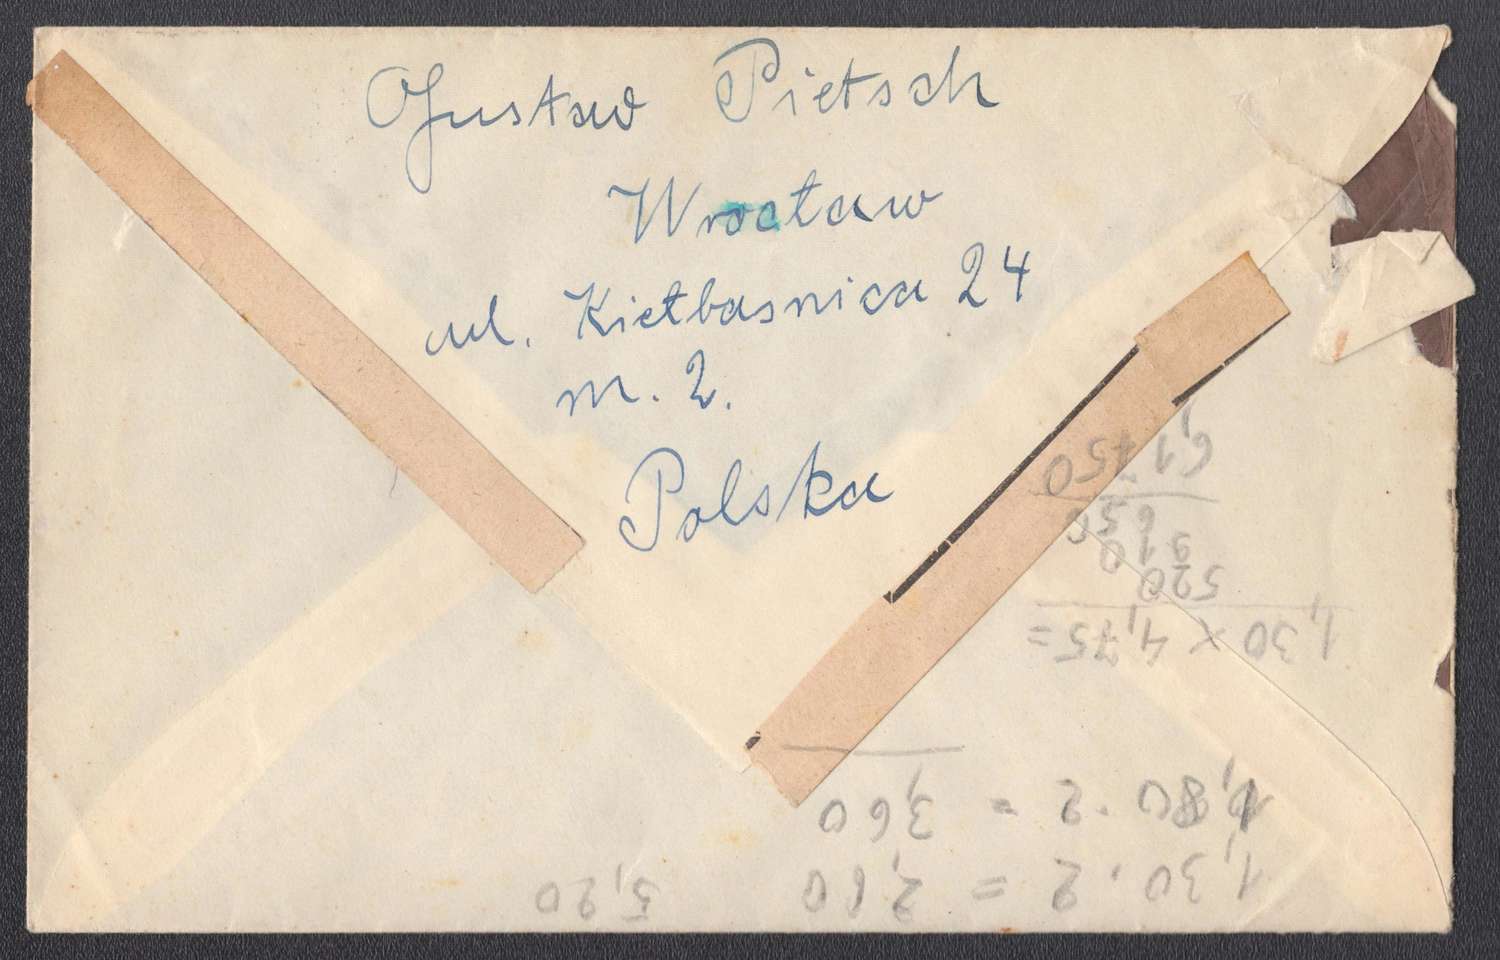 Gustaw Pietsch
Wrocław
ul. Kiełbasnica 24
m. 2.
Polska
1,30 . 2 = 2,60 5,20
1,80 . 2 = 3,60
1,30 x 4,75 =
520
910
650
6,1750